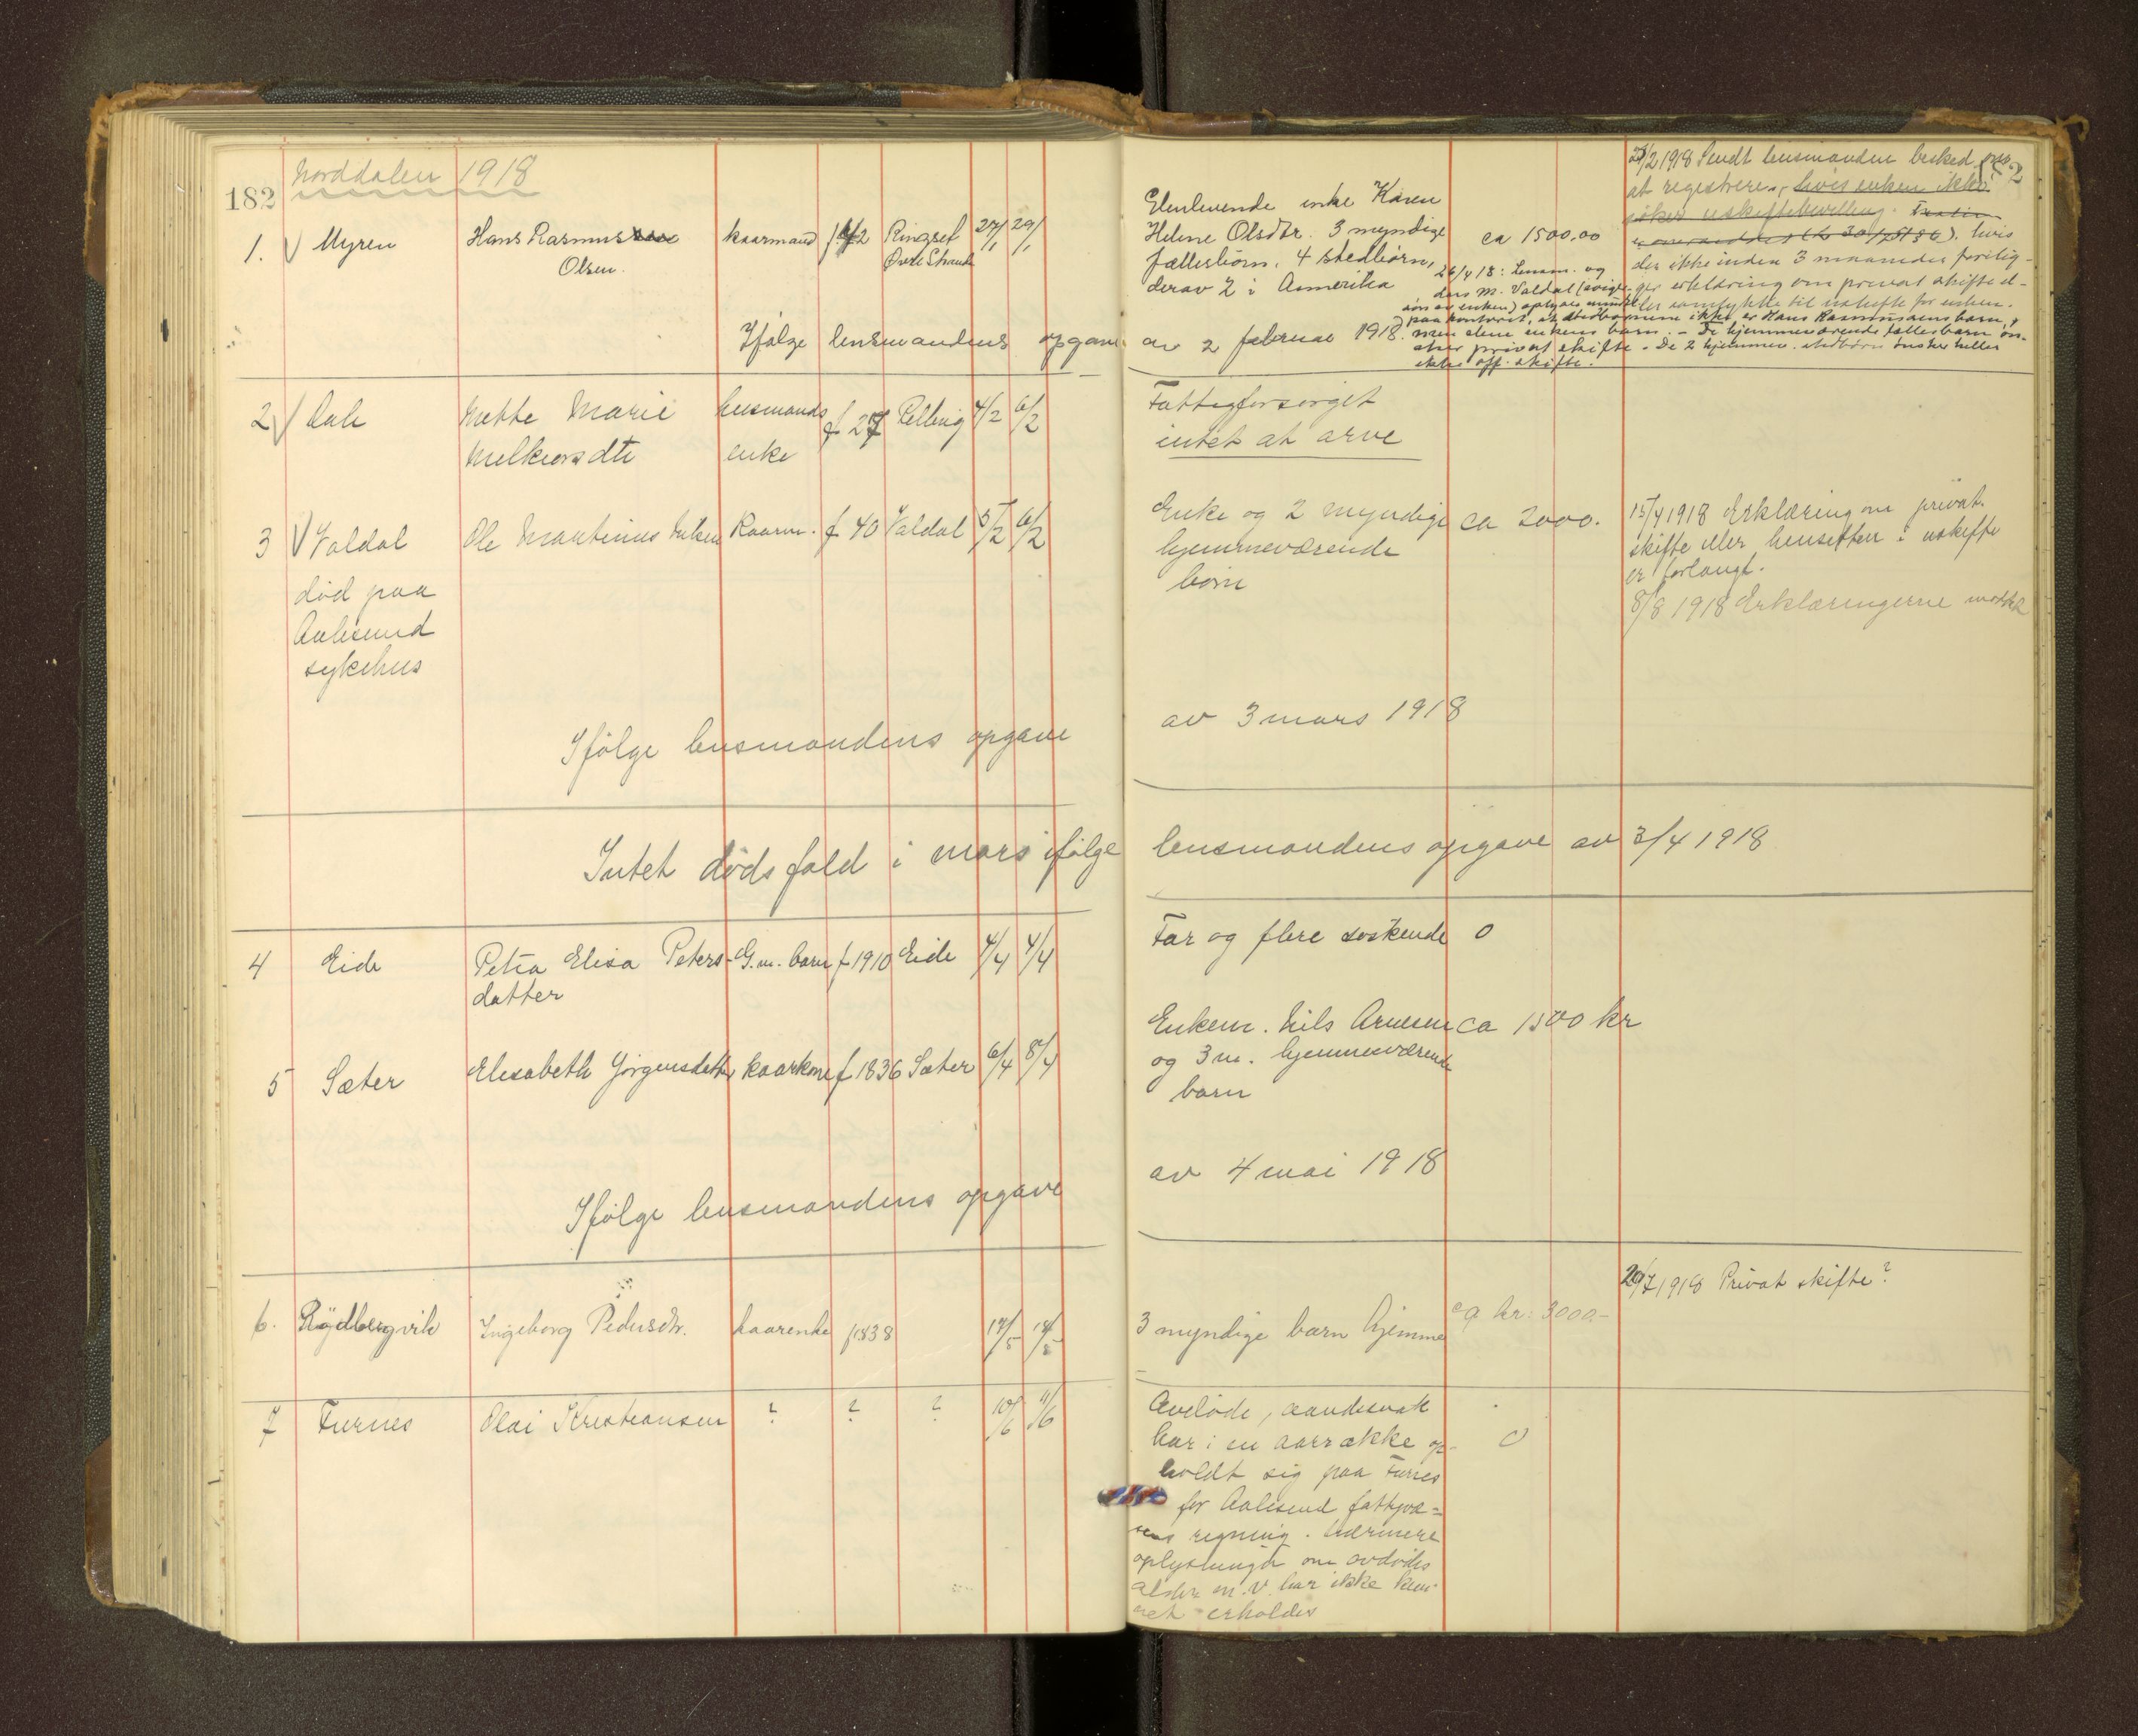 182
Norddalen 1918
1. Myren Hans Rasmus Olsen. kaarmand f. 42 Ringset Øvre Strande 27/1 29/1
Ifølge lensmandens opgave
2 Dale Mette Marie husmands f 27 Relling 4/2 6/2
Melkiorsdtr enke
3 Valdal Ole Martinus Kaarm. f 40 Valdal 5/2 6/2
død paa
Aalesund
sykehus
Ifølge lensmandens opgave
Intet dødsfald i mars ifølge
4 Eide Petra Elisa Peters- G.m. barn f 1910 Eide 4/4 4/4
datter
5 Sæter Elisabeth Jørgensdatter kaarkone f 1836 Sæter 6/4 8/4
Ifølge lensmandens opgave
6. Rydbergvik Ingeborg Pedersdr. kaarenke f 1838 17/5 18/5
7 Furnes Olai Kristiansen ? ? ? 10/6 11/6
Efterlevende enke Karen
Helene Olsdtr. 3 myndige ca 1500.00
fællesbørn. 4 stedbørn,
derav 2 i Amerika
av 2 februar 1918.
2/2 1918 Sendt lensmanden besked om
at registrere, hvis enken ikke
søker uskiftebevilling.
hvis
der ikke inden 3 maaneder forelig-
ger erklæring om privat skifte el-
ler samtykke til uskifte for enken.
26/4 18: Lensm. og
Lars M. Valdal (sviger-
søn av enken) oplyser
paa kontoret, at stedbørnene ikke er Hans Rasmussens barn,
men alene enkens barn. – De hjemmeværende fællesbarn øn-
sker privat skifte. De 2 hjemmev. stedbørn ønsker heller
ikke off. skifte.
Fattigforsørget
intet at arve
Enke og 2 myndige ca 2000.
hjemmeværende
børn
15/4 1918 Erklæring om privat
skifte eller hensitten i uskifte
er forlangt.
8/8 1918 Erklæringerne mottat
av 3 mars 1918
lensmandens opgave av 3/4 1918
Far og flere søskende 0
Enkem. Nils Arnesen ca 1500 kr
og 3 m. hjemmeværende
barn
av 4 mai 1918
20/7 1918 Privat skifte?
3 myndige barn hjemme ca kr: 3000.-
Avdøde, aandssvak
har i en aarrække op- 0
holdt sig paa Furnes
for Aalesund fattigvæ-
sens regning. Nærmere
oplysninger om avdødes
alder m.v. har ikke kun-
net erholdes